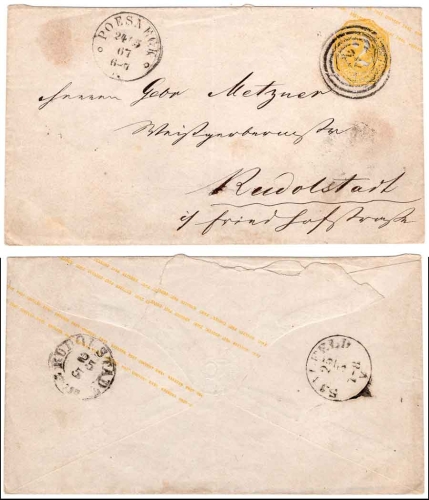 POESNECK
24 5
67
6-7
Herren Gebr Metzner
Weissgerbernstr
Rudolstadt
i/ Friedhofstraße
RUDOLSTADT
25
5
SAALFELD
25
5